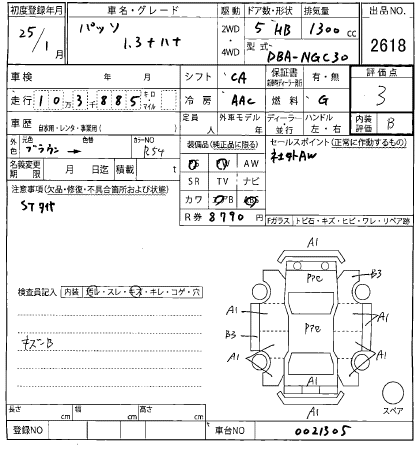 初度登録年月 車名・グレード 駆動 ドア数・形状 排気量 出品NO.
25/1月 パッソ 1.3+ハナ 2WD・4WD 5 HB 1300cc 2618
型式 DBA-NGC30
車検 年 月 シフト CA 保証書 有・無 評価点
走行 10万3千885 キロ・マイル 冷房 AAC 燃料 G 3
車歴 自家用・レンタ・事業用( ) 定員 人 外車モデル 年 ディーラー・並行 ハンドル 左・右 内装評価 B
外色 元色 ブラウン 色替 カラーNO R54 装備品(純正品に限る) セールスポイント(正常に動作するもの)
PS PW AW 社外AW
名義変更期限 月 日迄 積載 t SR TV ナビ
注意事項(欠品・修復・不具合箇所および状態) カワ エアB ABS
STタイヤ R券 8790 Fガラス トビ石・キズ・ヒビ・ワレ・リペア跡
A1
Pアセ B3
検査員記入 内装 汚レ・スレ・キズ・キレ・コゲ・穴
A1 A1
Pアセ
B3
キズンB A1 A1
A1
スペア
長さ cm 幅 cm 高さ cm
登録NO 車台NO 0021305